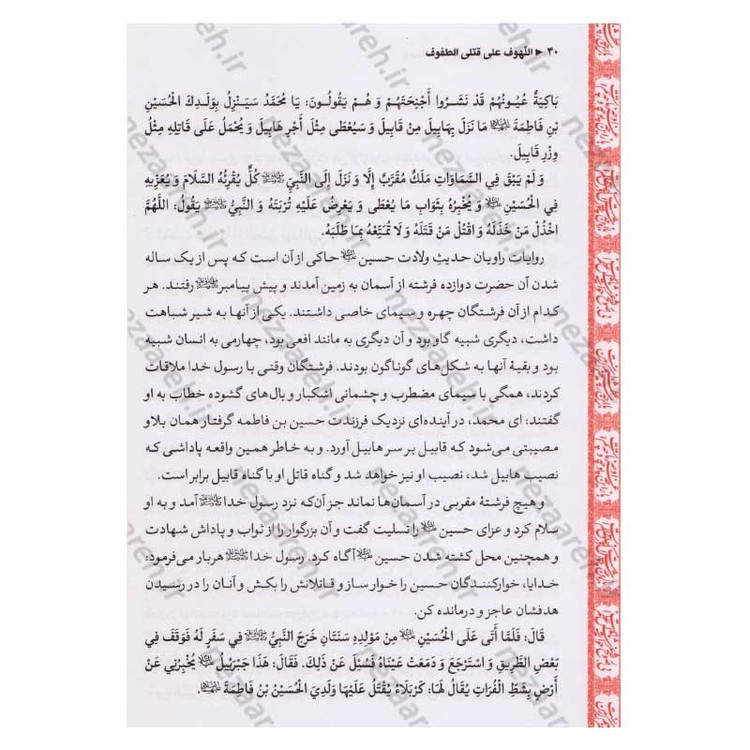 ۴۰ ◄ اللّهوف علی قتلی الطفوف
بَاکِیَةٌ عُیُونُهُمْ قَدْ نَشَرُوا أَجْنِحَتَهُمْ وَ هُمْ یَقُولُونَ: یَا مُحَمَّدُ سَیَنْزِلُ بِوَلَدِكَ الْحُسَیْنِ
بْنِ فَاطِمَةَ مَا نَزَلَ بِهَابِیلَ مِنْ قَابِیلَ وَ سَیُعْطَی مِثْلَ أَجْرِ هَابِیلَ وَ یُحْمَلُ عَلَی قَاتِلِهِ مِثْلُ
وِزْرِ قَابِیلَ.
وَ لَمْ یَبْقَ فِي السَّمَاوَاتِ مَلَكٌ مُقَرَّبٌ إِلَّا وَ نَزَلَ إِلَی النَّبِيِّ ﷺ کُلٌّ یُقْرِئُهُ السَّلَامَ وَ یُعَزِّیهِ
فِي الْحُسَیْنِ وَ یُخْبِرُهُ بِثَوَابِ مَا یُعْطَی وَ یَعْرِضُ عَلَیْهِ تُرْبَتَهُ وَ النَّبِيُّ ﷺ یَقُولُ: اللَّهُمَّ
اخْذُلْ مَنْ خَذَلَهُ وَ اقْتُلْ مَنْ قَتَلَهُ وَ لَا تُمَتِّعْهُ بِمَا طَلَبَهُ.
روایات راویان حدیثِ ولادت حسین حاکی از آن است که پس از یک ساله
شدن آن حضرت دوازده فرشته از آسمان به زمین آمدند و پیش پیامبر ﷺ رفتند. هر
کدام از آن فرشتگان چهره و سیمای خاصی داشتند. یکی از آنها به شیر شباهت
داشت، دیگری شبیه گاو بود و آن دیگری به مانند افعی بود، چهارمی به انسان شبیه
بود و بقیهٔ آنها به شکل‌های گوناگون بودند. فرشتگان وقتی با رسول خدا ملاقات
کردند، همگی با سیمای مضطرب و چشمانی اشکبار و بال‌های گشوده خطاب به او
گفتند: ای محمد، در آینده‌ای نزدیک فرزندت حسین بن فاطمه گرفتار همان بلا و
مصیبتی می‌شود که قابیل بر سر هابیل آورد. و به خاطر همین واقعه پاداشی که
نصیب هابیل شد، نصیب او نیز خواهد شد و گناه قاتل او با گناه قابیل برابر است.
و هیچ فرشتهٔ مقربی در آسمان‌ها نماند جز آن‌که نزد رسول خدا ﷺ آمد و به او
سلام کرد و عزای حسین را تسلیت گفت و آن بزرگوار را از ثواب و پاداش شهادت
و همچنین محل کشته شدن حسین آگاه کرد. رسول خدا ﷺ هربار می‌فرمود:
خدایا، خوارکنندگان حسین را خوار ساز و قاتلانش را بکش و آنان را در رسیدن به
هدفشان عاجز و درمانده کن.
قَالَ: فَلَمَّا أَتَی عَلَی الْحُسَیْنِ مِنْ مَوْلِدِهِ سَنَتَانِ خَرَجَ النَّبِيُّ ﷺ فِي سَفَرٍ لَهُ فَوَقَفَ فِي
بَعْضِ الطَّرِیقِ وَ اسْتَرْجَعَ وَ دَمَعَتْ عَیْنَاهُ فَسُئِلَ عَنْ ذَلِكَ. فَقَالَ: هَذَا جَبْرَئِیلُ یُخْبِرُنِي عَنْ
أَرْضٍ بِشَطِّ الْفُرَاتِ یُقَالُ لَهَا: کَرْبَلَاءُ یُقْتَلُ عَلَیْهَا وَلَدِيَ الْحُسَیْنُ بْنُ فَاطِمَةَ.
nezaareh.ir